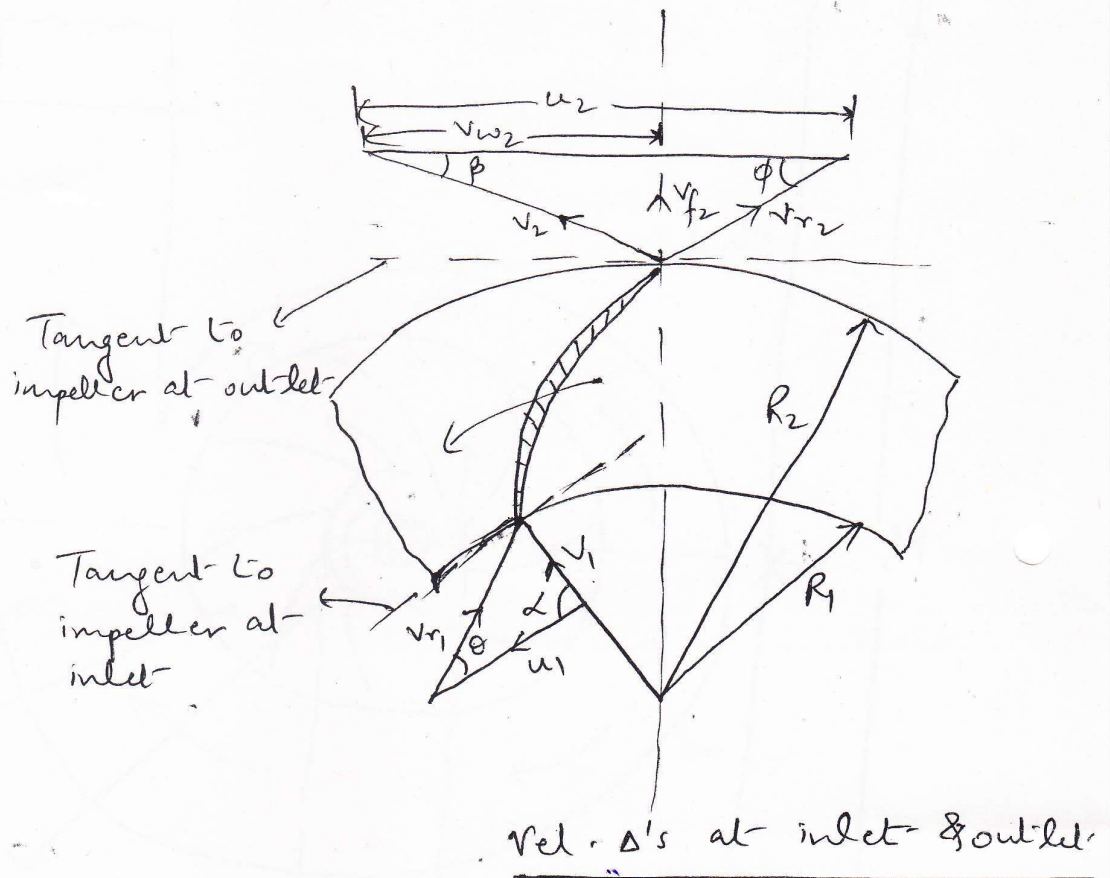 u₂
vw₂
β
ϕ
v₂
vf₂
vr₂
Tangent to
impeller at outlet
R₂
V₁
R₁
Tangent to
impeller at
inlet
vr₁
θ
α
u₁
Vel. Δ's at inlet & outlet